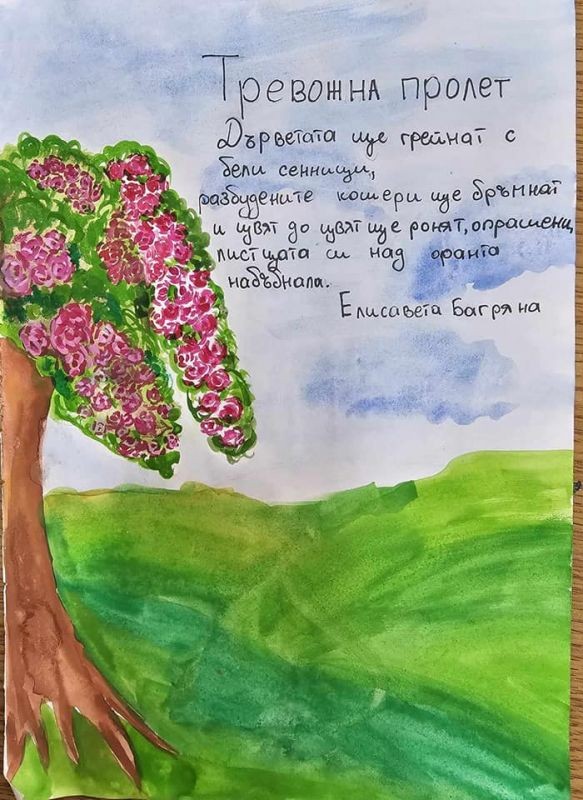 Тревожна пролет
Дърветата ще грейнат с
бели сеннищи,
разбудените кошери ще бръмнат
и цвят до цвят ще ронят, опрашени,
листцата си над оранта
набъбнала.
Елисавета Багряна